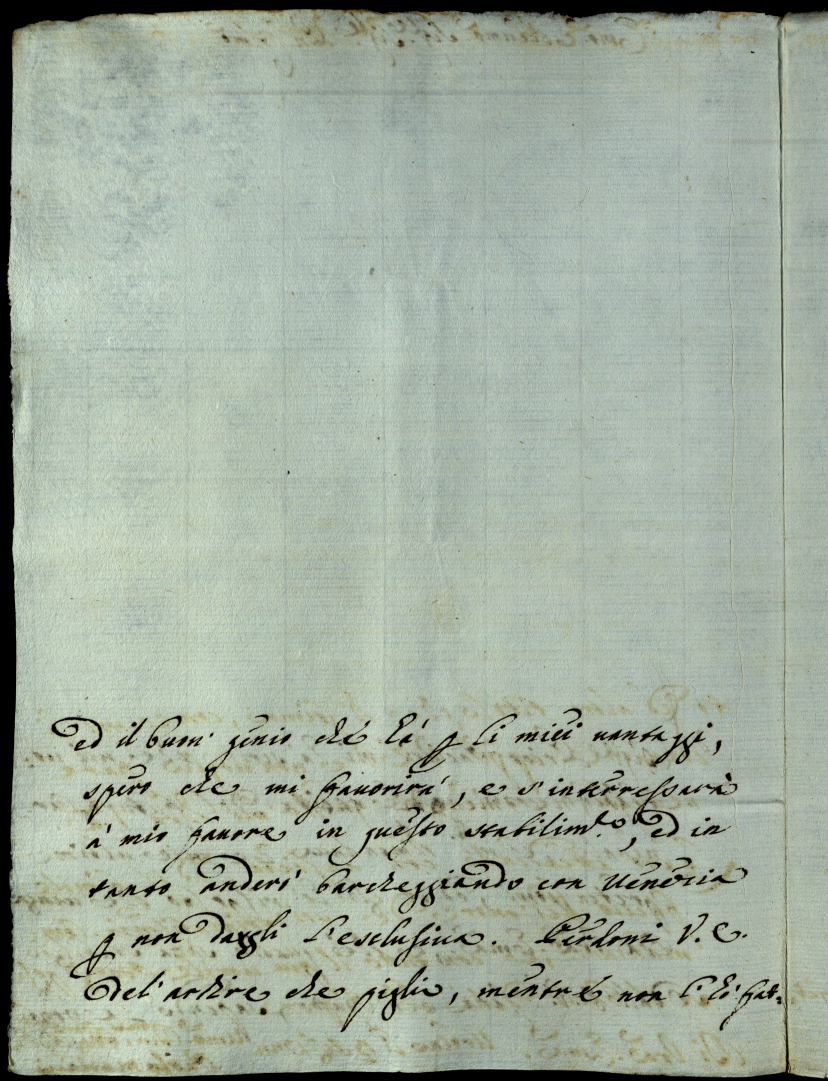 ed il buon' genio che hà p li miei uantaggi,
spero che mi fauorirà, e s'interressarà
à mio fauore in questo stabilim.to, ed in
tanto anderò barcheggiando con Uenecia
p non dargli l'esclusiua. Perdoni V. E.
del' ardire che piglio, mentre non l'hò fat=